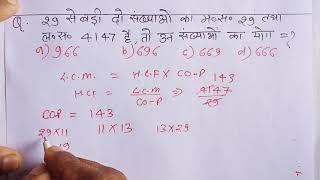 Q. 29 से बड़ी दो संख्याओं का म०स० 29 तथा
ल०स० 4147 हैं, तो उन संख्याओं का योग = ?
a) 966 b) 696 c) 669 d) 666
L.C.M = H.C.F × CO-P 143
HCF = L.C.M / CO-P ⇒ 4147 / 29
COP = 143
29×11 11×13 13×29